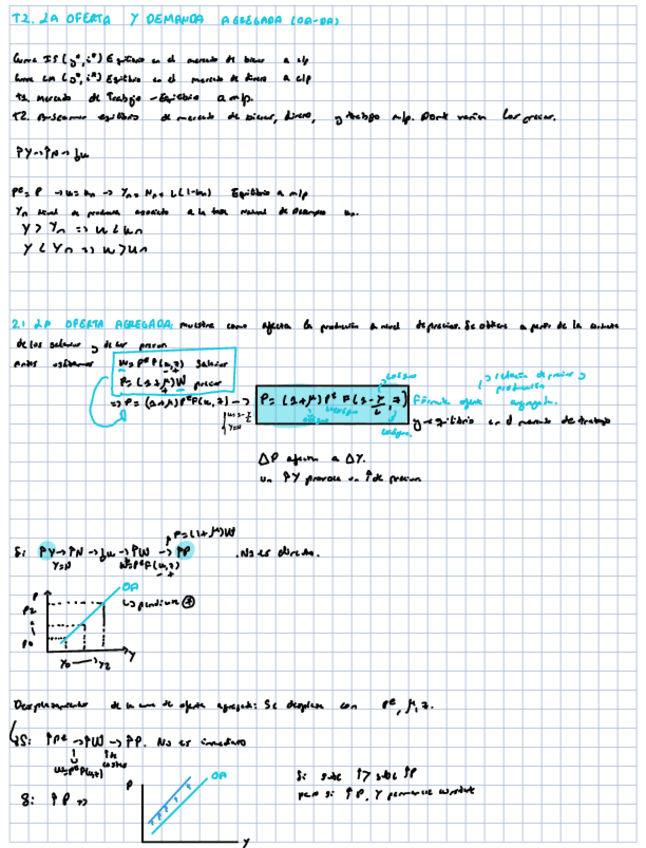 T2. LA OFERTA Y DEMANDA AGREGADA (OA-DA)
Curva IS (y*, i*) Equilibrio en el mercado de bienes a c/p
Curva LM (y*, i*) Equilibrio en el mercado de dinero a c/p
T1. mercado de Trabajo - Equilibrio a m/p.
T2. Buscamos equilibrio de mercado de bienes, dinero, y trabajo m/p. Donde varían los precios.
↑Y→↑N→↓u
Pᵉ = P → u = uₙ → Yₙ = Nₙ = L(1-uₙ) Equilibrio a m/p
Yₙ nivel de producción asociado a la tasa natural de desempleo uₙ.
Y > Yₙ => u < uₙ
Y < Yₙ => u > uₙ
2.1 LA OFERTA AGREGADA: muestra como afecta la producción a nivel de precios. Se obtiene a partir de la conducta
de los salarios y de los precios
Antes estábamos
W = PᵉF(u, z) Salarios
- +
P = (1+μ)W precios
=> P = (1+μ)PᵉF(u, z) →
u = 1-Y/L
Y=N
P = (1+μ)Pᵉ F(1-Y/L, z)
Fórmula oferta agregada.
relación de precios y producción
y equilibrio en el mercado de trabajo
ΔP afecta a ΔY.
un ↑Y provoca un ↑ de precios
P=(1+μ)W
Si ↑Y→↑N→↓u→↑W→↑P . No es directo.
Y=N W=PᵉF(u,z)
- +
P OA
P2 ↳ pendiente +
P0
Y0 → Y2 Y
Desplazamiento de la curva de oferta agregada: Se desplaza con Pᵉ, μ, z.
Si: ↑Pᵉ→↑W→↑P. No es inmediato
W=PᵉF(u,z) costes
Si: ↑P =>
P OA
Y
Si sube ↑z sube ↑P
pero si ↑P, Y permanece constante